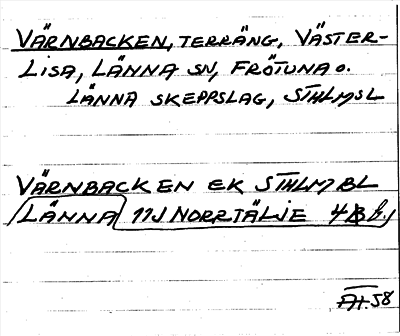 VÄRNBACKEN, TERRÄNG, VÄSTER-
LISA, LÄNNA SN, FRÖTUNA o.
LÄNNA SKEPPSLAG, STHLMSL
VÄRNBACKEN EK STHLM BL
LÄNNA 11J NORRTÄLJE 4 B b.
58